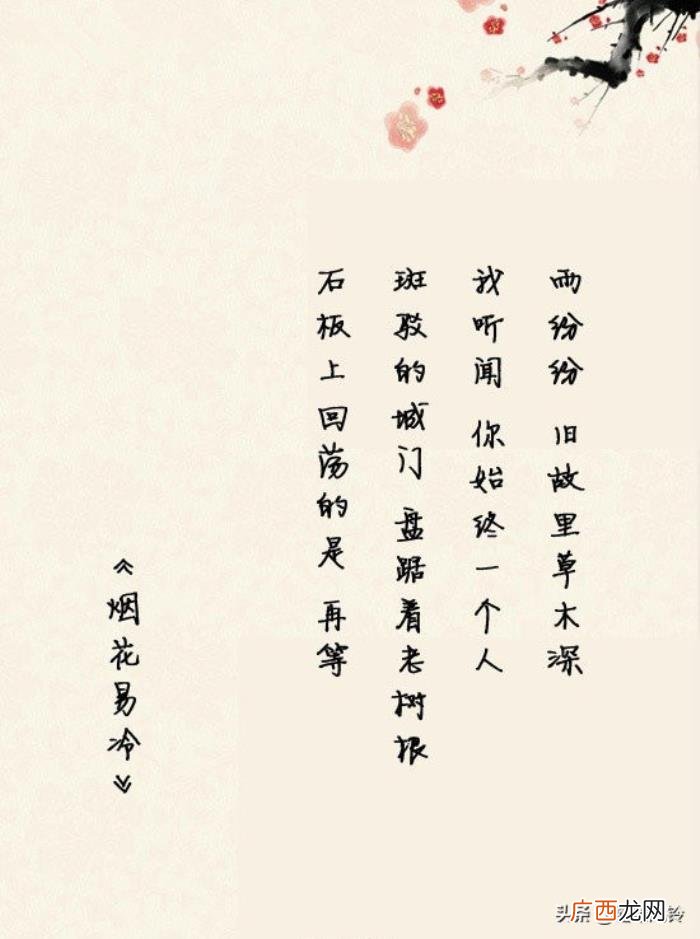 雨纷纷 旧故里草木深
我听闻 你始终一个人
斑驳的城门 盘踞着老树根
石板上回荡的是 再等
《烟花易冷》
头条
广西龙网
铃